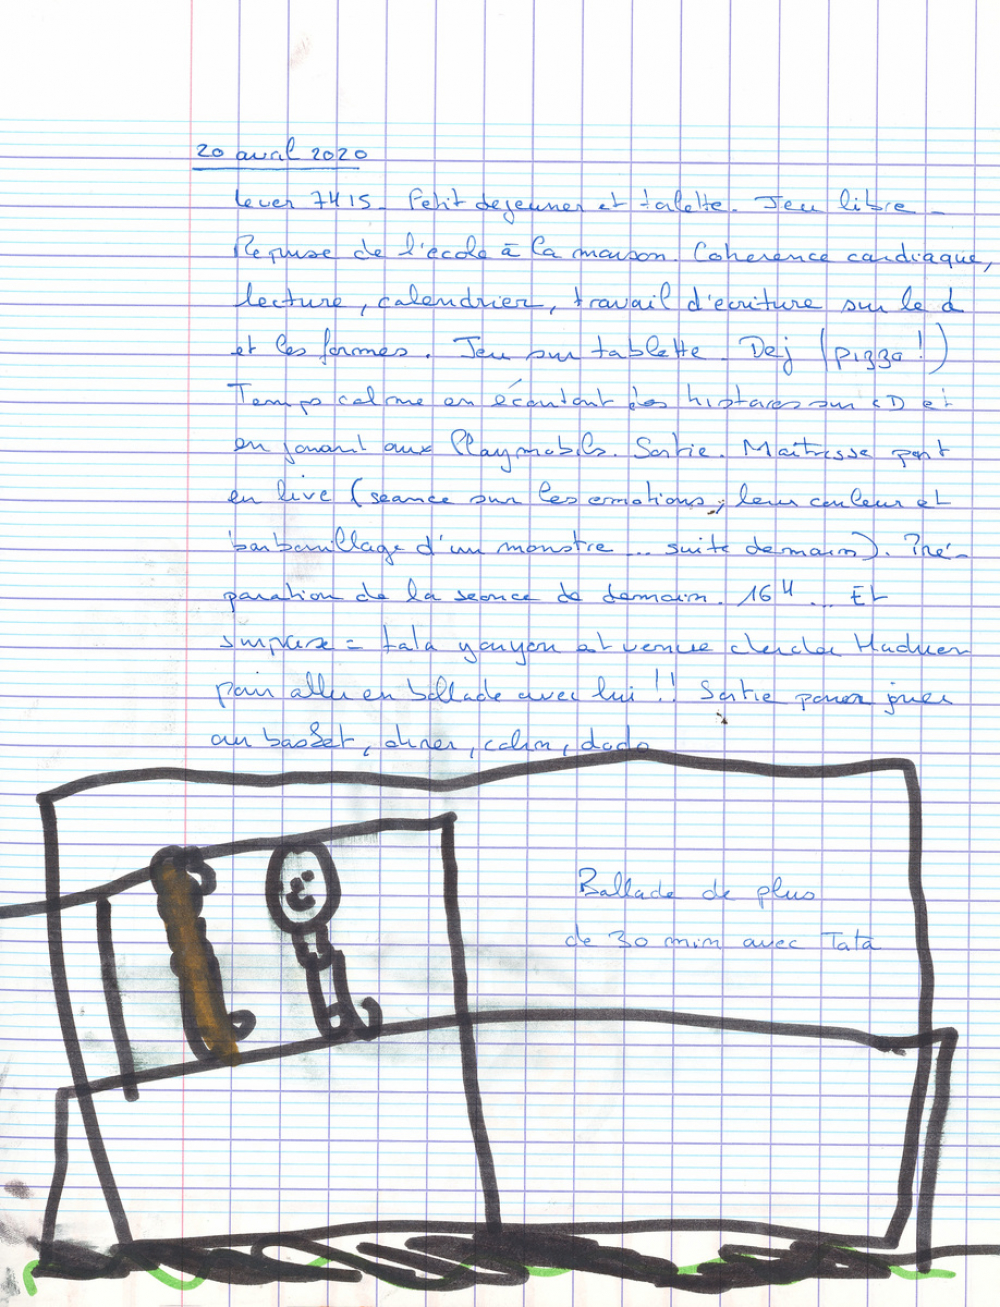 20 avril 2020
Lever 7H15. Petit dejeuner et tablette. Jeu libre.
Reprise de l'école à la maison. Coherence cardiaque,
lecture, calendrier, travail d'ecriture sur le d
et les formes. Jeu sur tablette. Dej (pizza !)
Temps calme en écoutant des histoires sur CD et
en jouant aux Playmobils. Sortie. Maîtresse part
en live (seance sur les emotions, leur couleur et
barbouillage d'un monstre ... suite demain). Pré-
paration de la seance de demain. 16H ... Et
surprise = tata youyou est venue chercher
pour aller en ballade avec lui !! Sortie pour jouer
au basket, diner, calin, dodo
Ballade de plus
de 30 min avec Tata